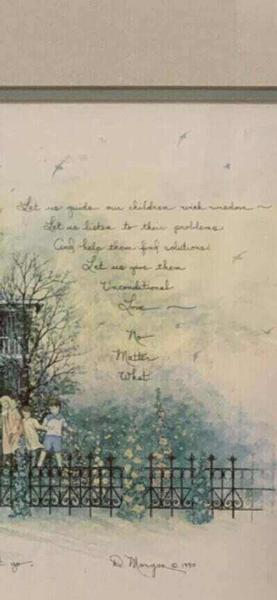 Let us guide our children with wisdom ~
Let us listen to their problems
And help them find solutions
Let us give them
Unconditional
Love ~
No
Matter
What
go.
D. Morgan © 1990